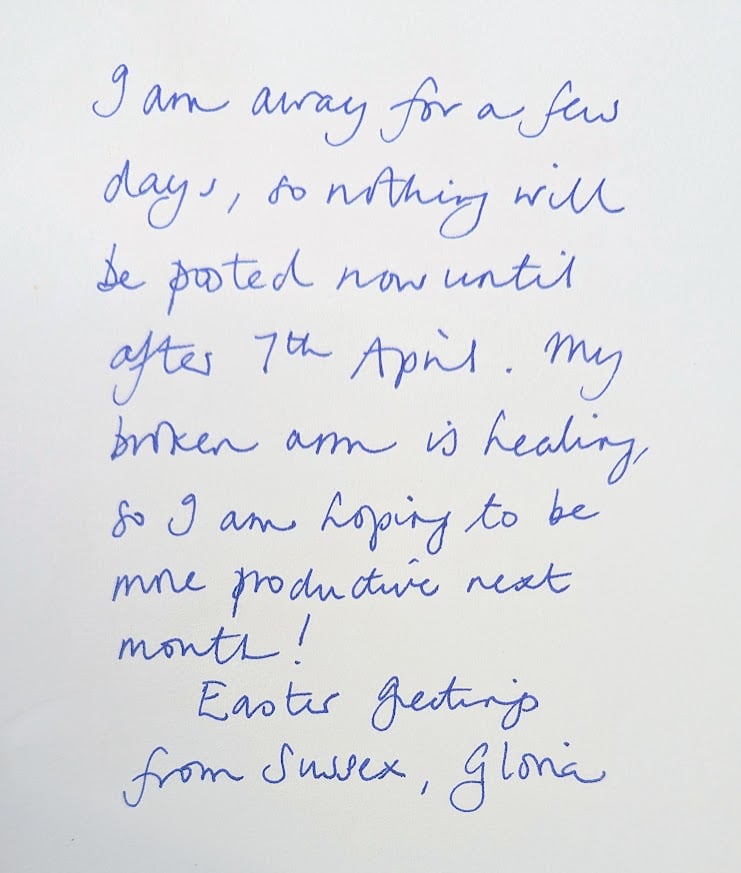 I am away for a few
days, so nothing will
be posted now until
after 7th April. My
broken arm is healing,
so I am hoping to be
more productive next
month!
Easter greetings
from Sussex, Gloria